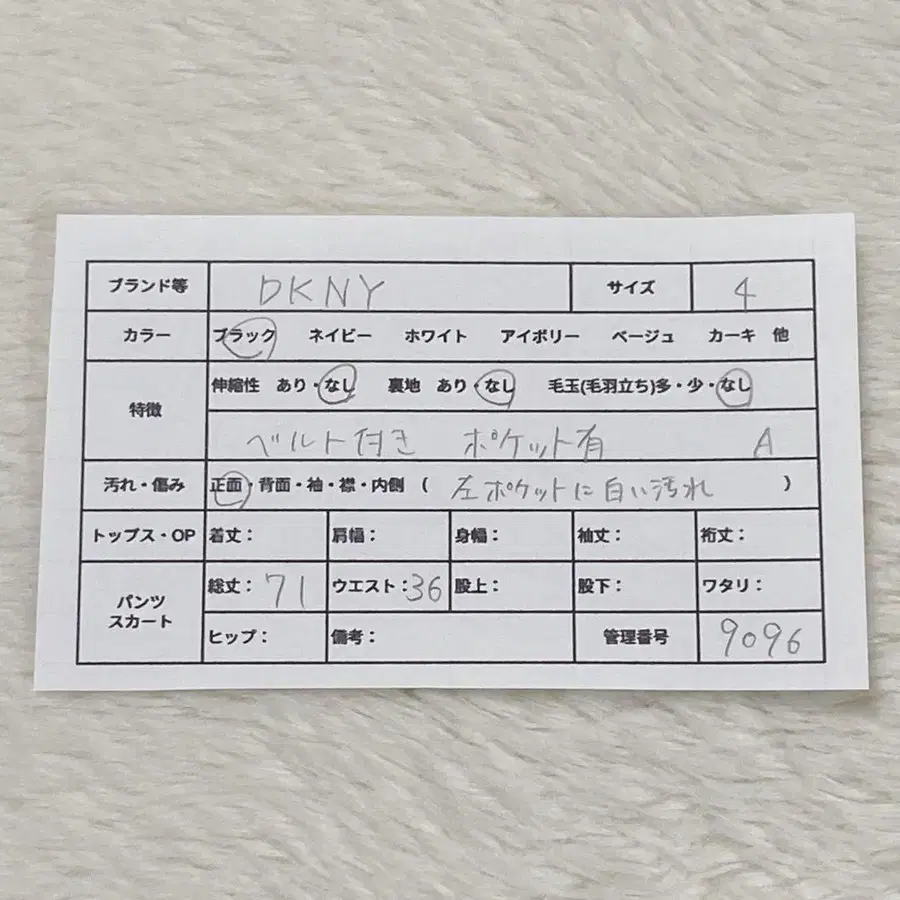 ブランド等 DKNY サイズ 4
カラー ブラック ネイビー ホワイト アイボリー ベージュ カーキ 他
特徴 伸縮性 あり・なし 裏地 あり・なし 毛玉(毛羽立ち)多・少・なし
ベルト付き ポケット有 A
汚れ・傷み 正面・背面・袖・襟・内側 ( 左ポケットに白い汚れ )
トップス・OP 着丈: 肩幅: 身幅: 袖丈: 裄丈:
パンツ スカート 総丈:71 ウエスト:36 股上: 股下: ワタリ:
ヒップ: 備考: 管理番号 9096